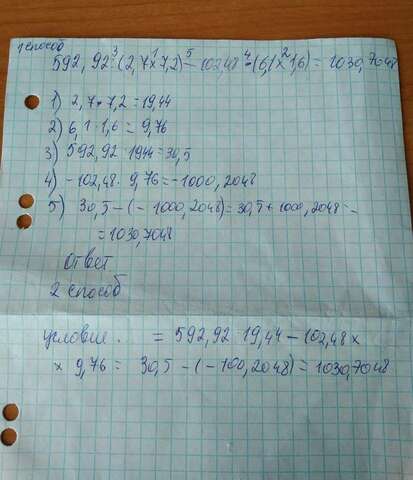 1 способ
592,92 : (2,7 x 7,2) - 102,48 · (6,1 x 1,6) = 1030,7048
1) 2,7 · 7,2 = 19,44
2) 6,1 · 1,6 = 9,76
3) 592,92 · 1944 = 30,5
4) -102,48 · 9,76 = -1000,2048
5) 30,5 - (-1000,2048) = 30,5 + 1000,2048 =
= 1030,7048
Ответ
2 способ
условие. = 592,92 19,44 - 102,48 x
x 9,76 = 30,5 - (-100,2048) = 1030,7048